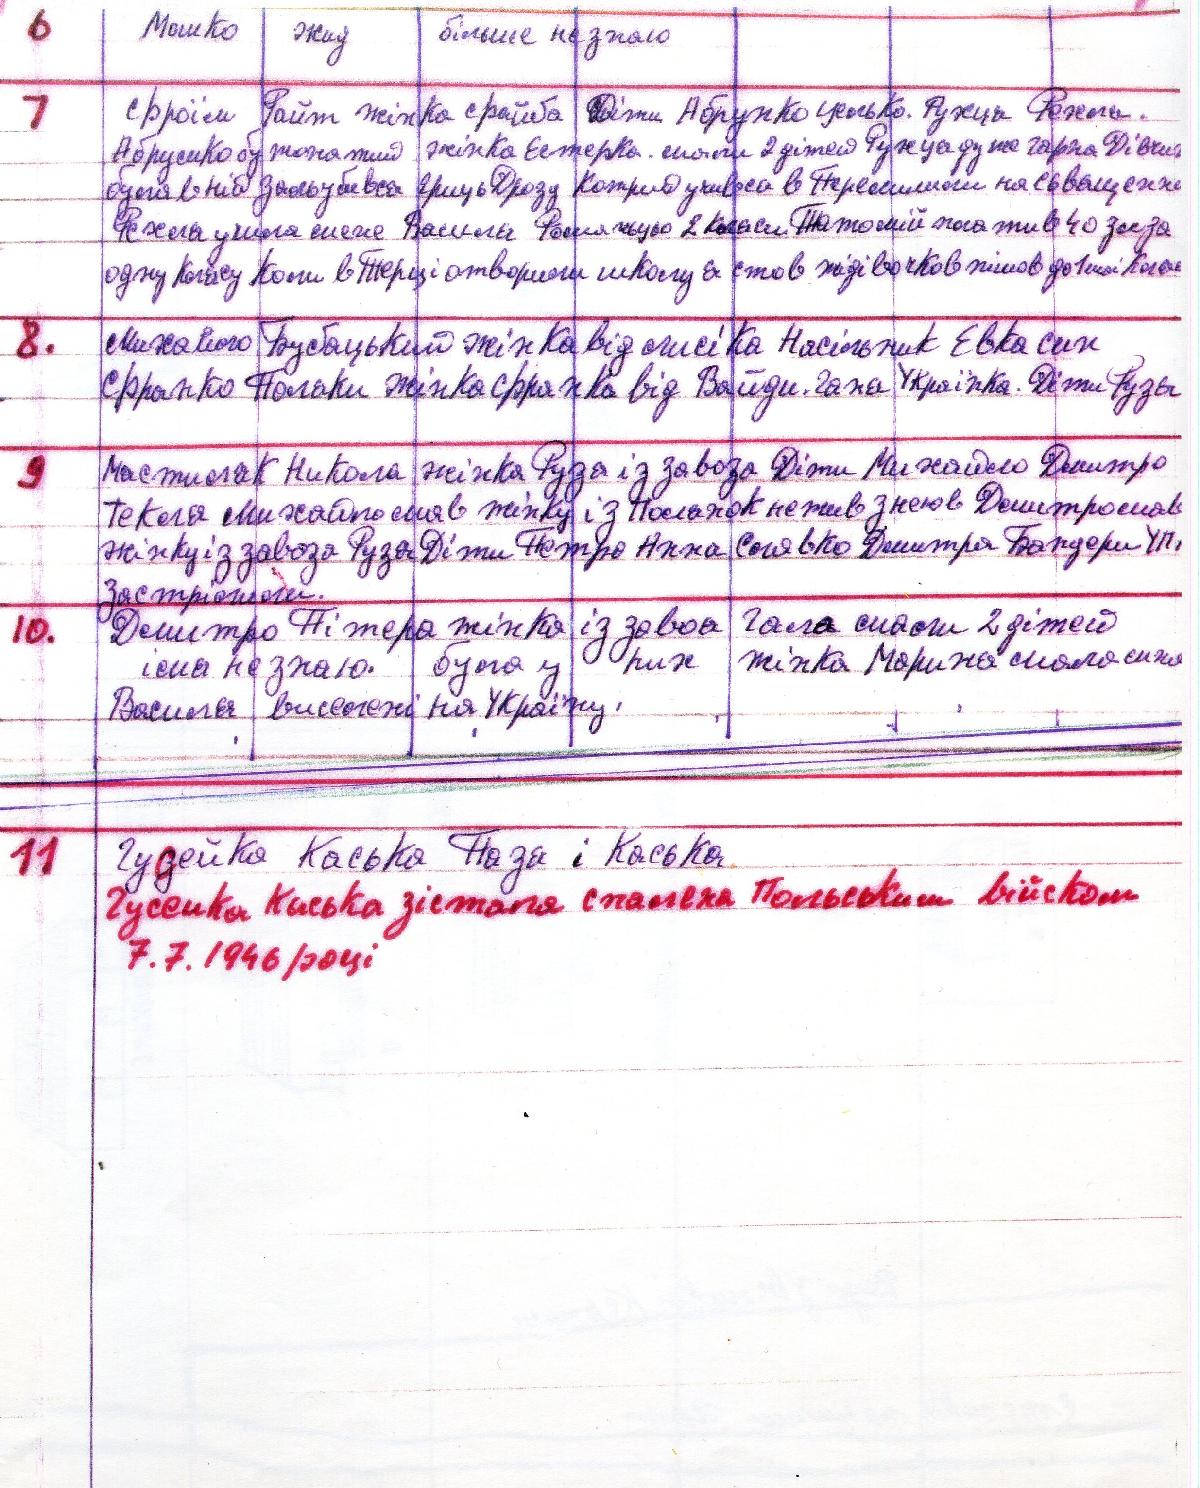 6 Мошко жид більше не знаю
7 Фроїм Файт жінка Фрайба Діти Абрумко Ружца Рехля.
Абрумко був жонатий жінка Естерка. мали 2 дітей Ружца дуже гарна Дівчи
була в ній Залюбився Гриць Дрозд Котрий учився в Перемишли на священи
Рехля учила мене Василя 2 Класи. Тато мій платив 40 зл за
одну Класу Коли в Терці отворили школу я став
8. Михайло жінка від Насільник Евка син
Франко Поляки жінка Франка від Вайди. Гана Українка. Діти Рузя
9 Мастиляк Никола жінка Руза із завоза Діти Михайло Дмитро
Текля Михайло мав жінку із Польок не жив з нею Дмитро мав
жінку із завоза Руза Діти Петро Анна Славко Дмитра Бандери УП
Застрілили.
10. Дмитро Пітера жінка із завоа Гала мали 2 дітей
імя не знаю. була у них жінка Марина мала сина
Василя виселені на Україну.
11 Гудейка Каська Паза і Каська
Гусейка Каська зістала спалена Польським військом
7.7.1946 році